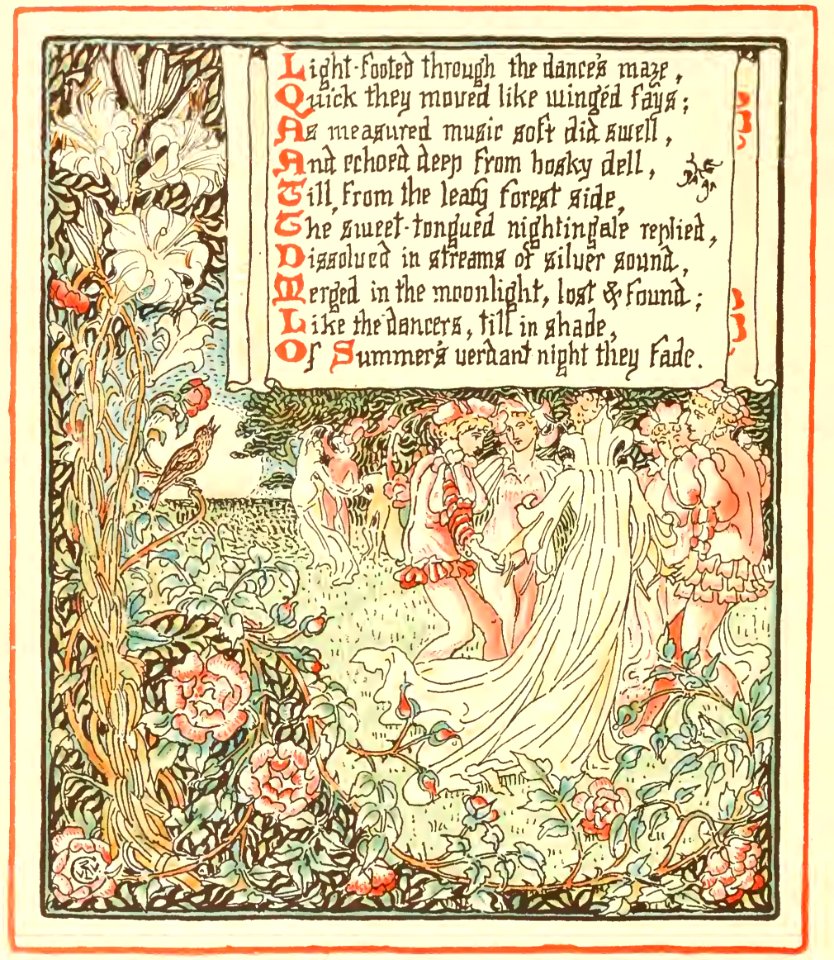 Light-footed through the dance's maze,
Quick they moved like winged fays;
As measured music soft did swell,
And echoed deep from bosky dell,
Till, from the leafy forest side,
The sweet-tongued nightingale replied,
Dissolved in streams of silver sound,
Merged in the moonlight, lost & found;
Like the dancers, till in shade,
Of Summer's verdant night they fade.